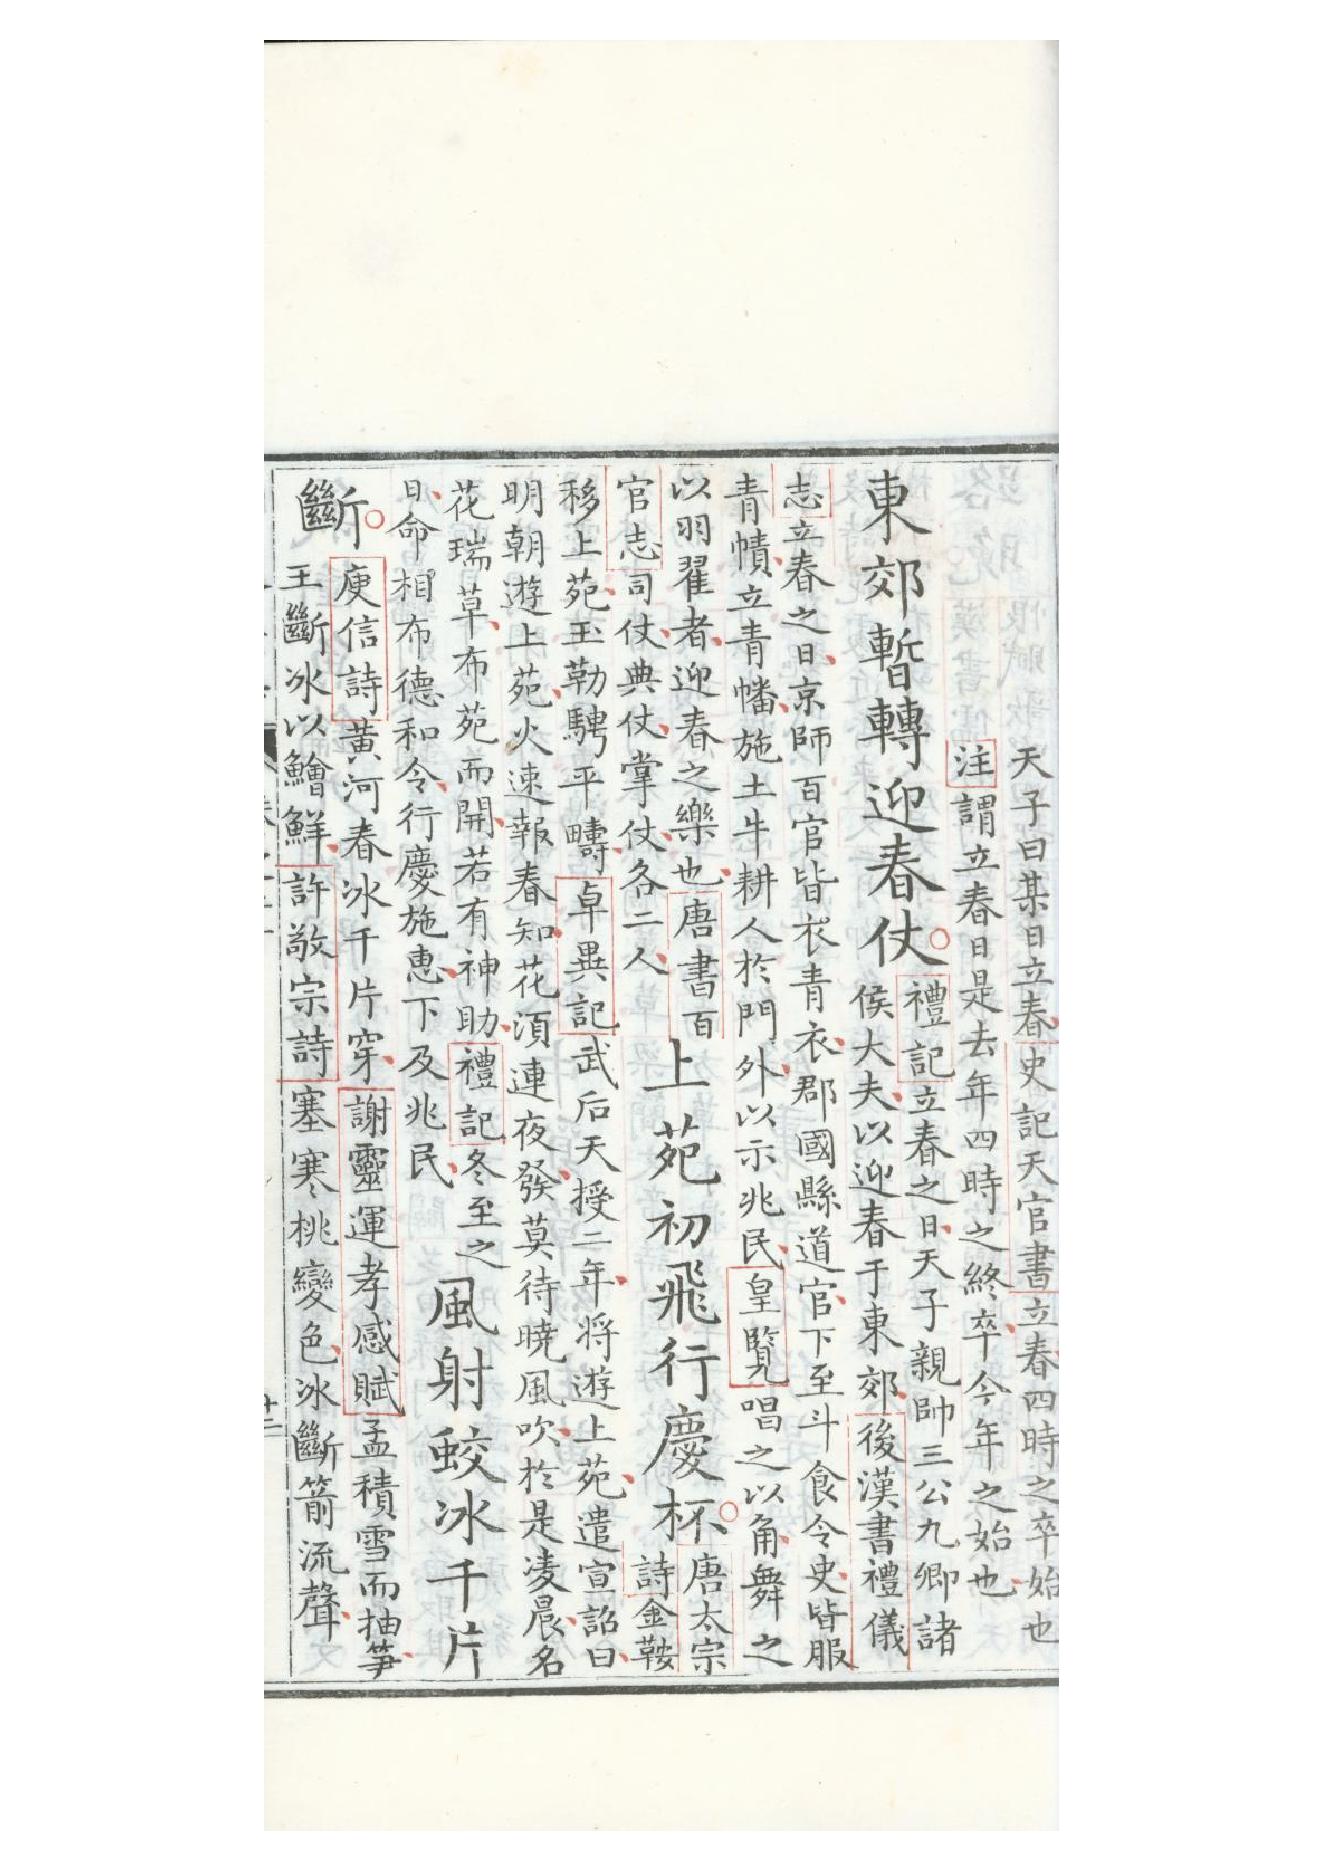 天子曰某日立春史記天官書立春四時之卒始也
注謂立春日是去年四時之終卒今年之始也
東郊暫轉迎春仗
禮記立春之日天子親帥三公九卿諸
侯大夫以迎春于東郊後漢書禮儀
志立春之日京師百官皆衣青衣郡國縣道官下至斗食令史皆服
青幘立青幡施土牛耕人於門外以示兆民皇覽唱之以角舞之
以羽翟者迎春之樂也唐書百
官志司仗典仗掌仗各二人
上苑初飛行慶杯
唐太宗
詩金鞍
移上苑玉勒騁平疇卓異記武后天授二年將遊上苑遣宣詔曰
明朝遊上苑火速報春知花須連夜發莫待曉風吹於是凌晨名
花瑞草布苑而開若有神助禮記冬至之
日命相布德和令行慶施惠下及兆民
風射蛟冰千片
斷
庾信詩黃河春冰千片穿謝靈運孝感賦孟積雪而抽笋
王斷冰以鱠鮮許敬宗詩塞寒桃變色冰斷箭流聲